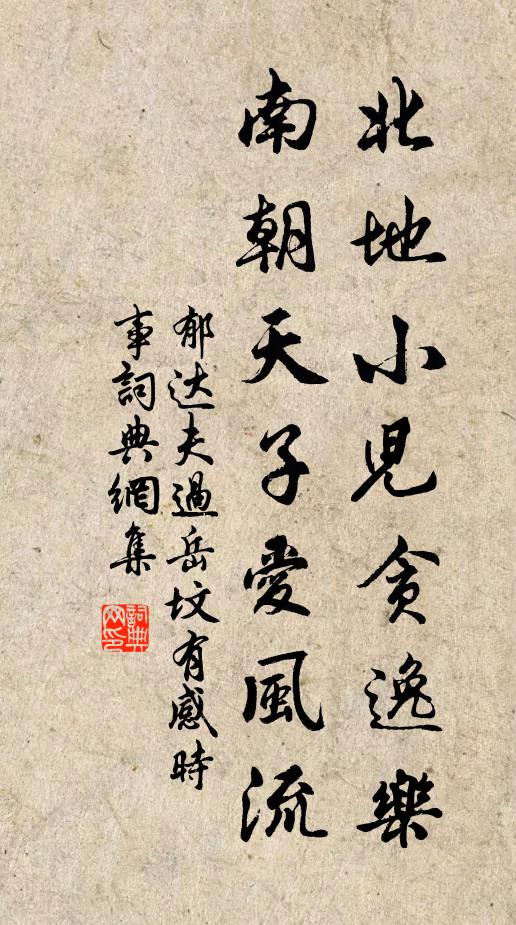 北地小兒貪逸樂
南朝天子愛風流
郁达夫過岳坟有感時
事詞典網集
詞典
网印